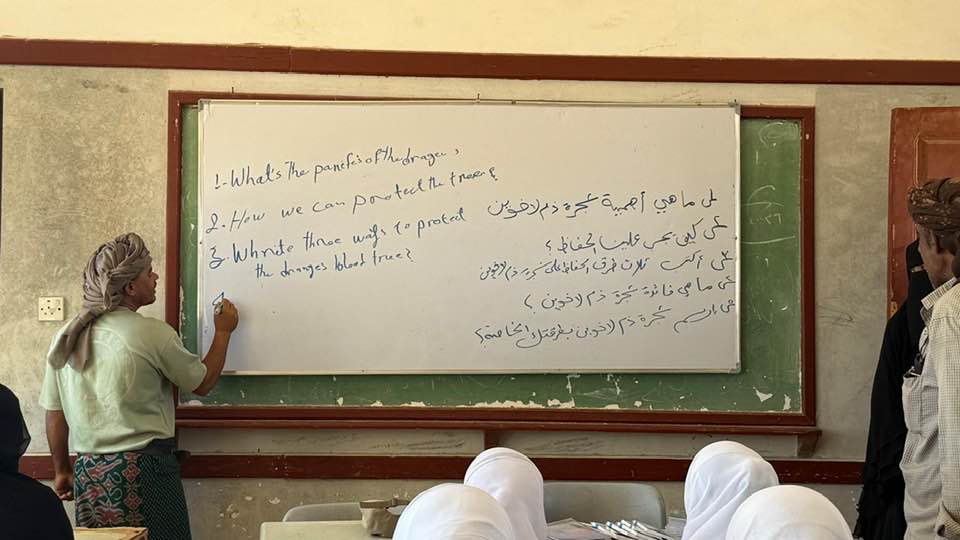 1- What's the panefi's of the drages,
2. How we can prortect the treee?
3. Whrite three ways to protect
the drages blood tree?
4
س1 ما هي أهمية شجرة دم الاخوين
س2 كيف يجب علينا الحفاظ؟
س3 أكتب ثلاث طرق الحفاظ على شجرة دم الاخوين
س4 ما هي فائدة شجرة دم الاخوين؟
س5 ارسم شجرة دم الاخوين بطريقتك الخاصة؟